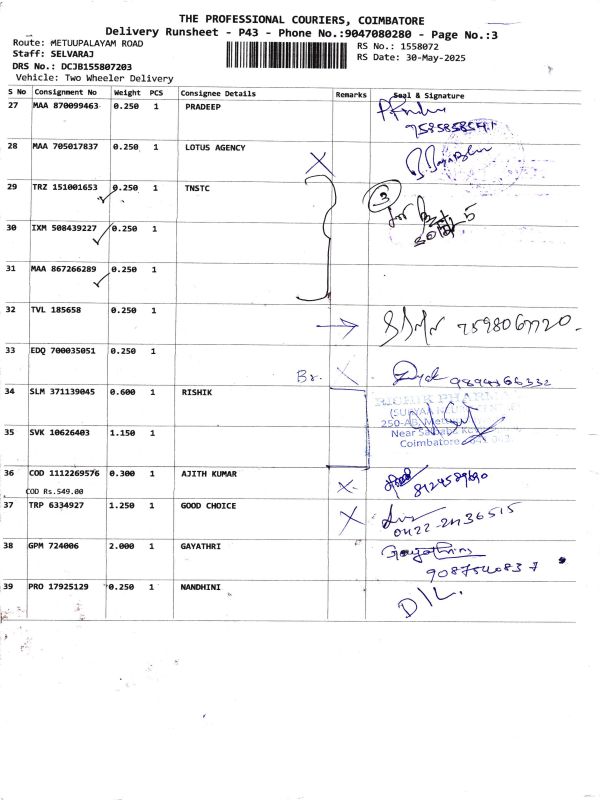 THE PROFESSIONAL COURIERS, COIMBATORE
Delivery Runsheet - P43 - Phone No.:9047080280 - Page No.:3
Route: METUUPALAYAM ROAD
RS No.: 1558072
Staff: SELVARAJ
RS Date: 30-May-2025
DRS No.: DCJB155807203
Vehicle: Two Wheeler Delivery
S No Consignment No Weight PCS Consignee Details Remarks Seal & Signature
27 MAA 870099463 0.250 1 PRADEEP
28 MAA 705017837 0.250 1 LOTUS AGENCY X
29 TRZ 151001653 0.250 1 TNSTC 3
30 IXM 508439227 0.250 1
31 MAA 867266289 0.250 1
32 TVL 185658 0.250 1
33 EDQ 700035051 0.250 1 Br. X
34 SLM 371139045 0.600 1 RISHIK
RISHIK PHARMA
250-AB,
35 SVK 10626403 1.150 1
Near
Coimbatore
36 COD 1112269576 0.300 1 AJITH KUMAR X
8124589690
COD Rs.549.00
37 TRP 6334927 1.250 1 GOOD CHOICE X
0422-2436515
38 GPM 724006 2.000 1 GAYATHRI Gayathri
9087540837
39 PRO 17925129 0.250 1 NANDHINI D/L.